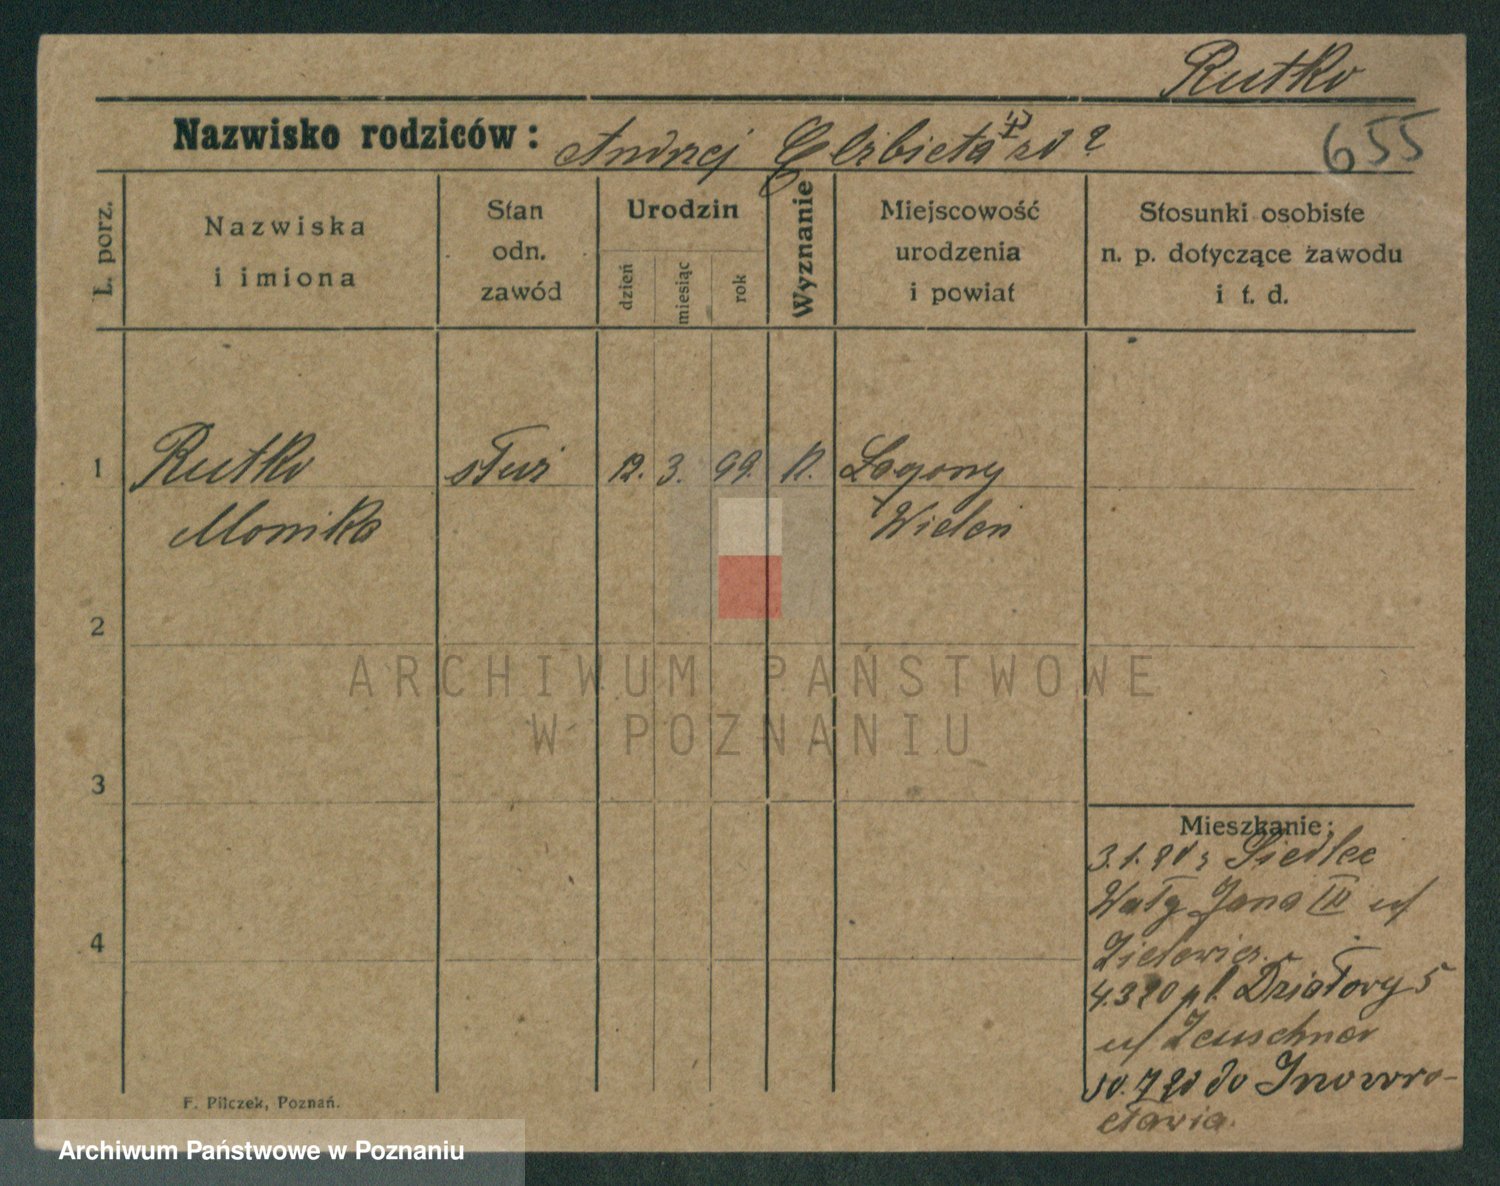 Rutko
Nazwisko rodziców: Andrzej Elżbieta zd ?
655
L. porz.
Nazwiska
i imiona
Stan
odn.
zawód
Urodzin
dzień
miesiąc
rok
Wyznanie
Miejscowość
urodzenia
i powiat
Stosunki osobiste
n. p. dotyczące zawodu
i t. d.
1
Rutko
służ
12. 3. 99.
k.
Wieleń
Monika
2
ARCHIWUM PAŃSTWOWE
W POZNANIU
3
Mieszkanie:
3.1.20 z Siedlec
Wały Jana III u/
4
4.3.20 pl. Działowy 5
u/ Zeuschner
10.7.20 do Inowro-
cławia.
F. Pilczek, Poznań.
Archiwum Państwowe w Poznaniu